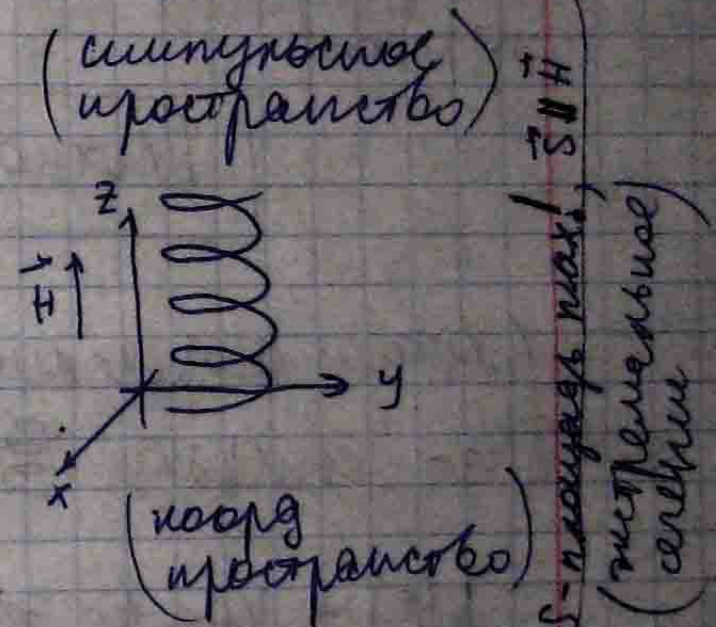 (импульсное
пространство)
z
H
y
x
(коорд
пространство)
S - площадь max, S ∥ H
(экстремальное
сечение)